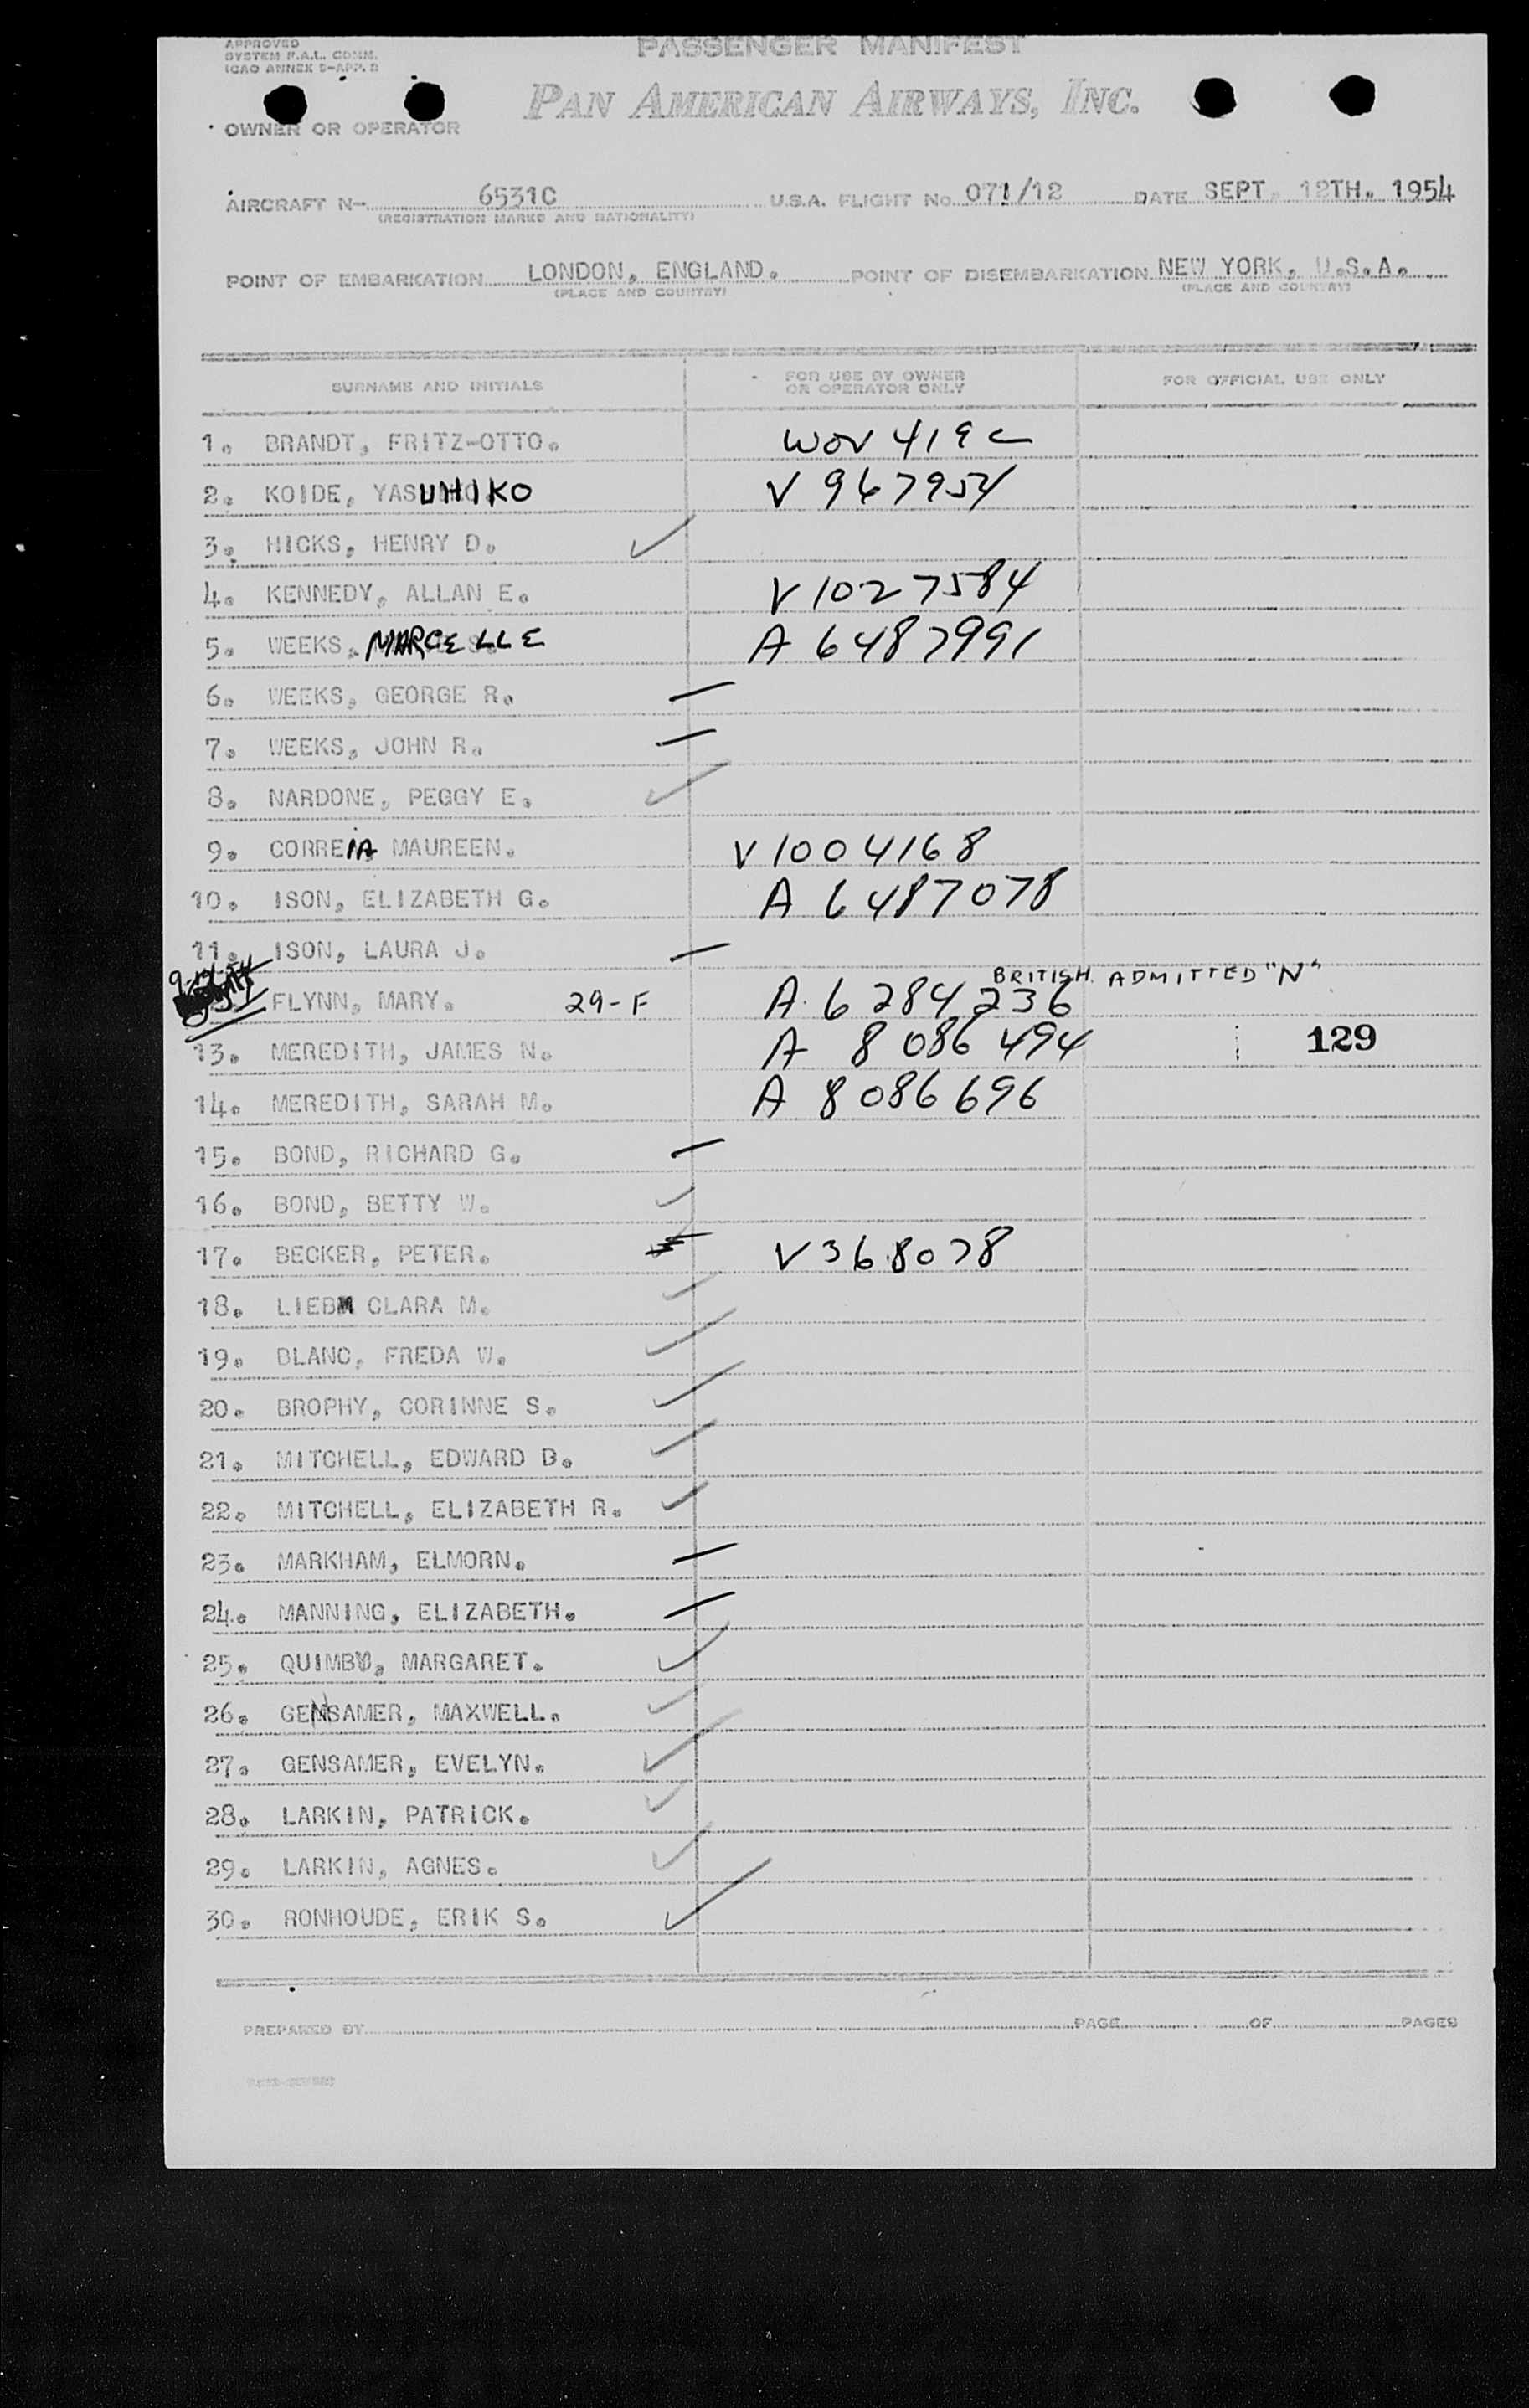 APPROVED
SYSTEM F.A.L. COMM.
ICAO ANNEX 9-APP.
PASSENGER MANIFEST
PAN AMERICAN AIRWAYS, INC.
OWNER OR OPERATOR
AIRCRAFT N- 6531C U.S.A. FLIGHT No. 071/12 DATE SEPT. 12TH. 1954
(REGISTRATION MARKS AND NATIONALITY)
POINT OF EMBARKATION LONDON, ENGLAND. POINT OF DISEMBARKATION NEW YORK, U.S.A.
(PLACE AND COUNTRY) (PLACE AND COUNTRY)
SURNAME AND INITIALS FOR USE BY OWNER OR OPERATOR ONLY FOR OFFICIAL USE ONLY
1. BRANDT, FRITZ-OTTO. WOV 419 C
2. KOIDE, YASUHIKO V 967954
3. HICKS, HENRY D. ✓
4. KENNEDY, ALLAN E. V 1027584
5. WEEKS, MARCELLE A 6487991
6. WEEKS, GEORGE R. —
7. WEEKS, JOHN R. —
8. NARDONE, PEGGY E. ✓
9. CORREIA MAUREEN. V 1004168
10. ISON, ELIZABETH G. A 6487078
11. ISON, LAURA J. —
FLYNN, MARY. 29-F A 6284236 BRITISH. ADMITTED "N"
13. MEREDITH, JAMES N. A 8086 494 129
14. MEREDITH, SARAH M. A 8086696
15. BOND, RICHARD G. —
16. BOND, BETTY W. ✓
17. BECKER, PETER. V368078
18. LIEBM CLARA M. ✓
19. BLANC, FREDA W. ✓
20. BROPHY, CORINNE S. ✓
21. MITCHELL, EDWARD B. ✓
22. MITCHELL, ELIZABETH R. ✓
23. MARKHAM, ELMORN. —
24. MANNING, ELIZABETH. —
25. QUIMBY, MARGARET. ✓
26. GENSAMER, MAXWELL. ✓
27. GENSAMER, EVELYN. ✓
28. LARKIN, PATRICK. ✓
29. LARKIN, AGNES. ✓
30. RONHOUDE, ERIK S. ✓
PREPARED BY PAGE OF PAGES